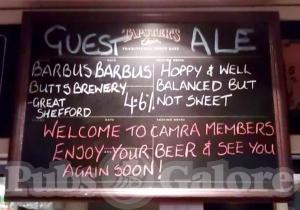 TAPSTER'S
Choice
TRADITIONAL CASK ALES
GUEST ALE
BARBUS BARBUS
BUTTS BREWERY
-GREAT
SHEFFORD
4.6%
HOPPY & WELL
BALANCED BUT
NOT SWEET
WELCOME TO CAMRA MEMBERS
ENJOY YOUR BEER & SEE YOU
AGAIN SOON!
Pubs Galore